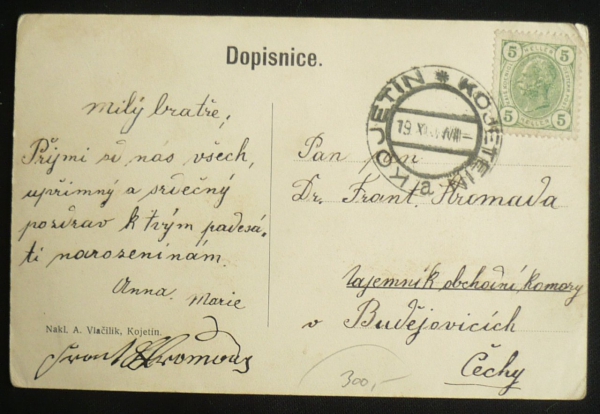 Dopisnice.
KOJETÍN * KOJETEIN
19 X
a
5 HELLER 5
5 HELLER 5
Milý bratře,
Přijmi od nás všech,
upřímný a srdečný
pozdrav k tvým padesá-
ti narozeninám.
Anna. Marie
Nakl. A. Vlačilík, Kojetín.
Frant Hromada
Pan pan
Dr. Frant. Hromada
tajemník obchodní komory
v Budějovicích
Čechy
300,-